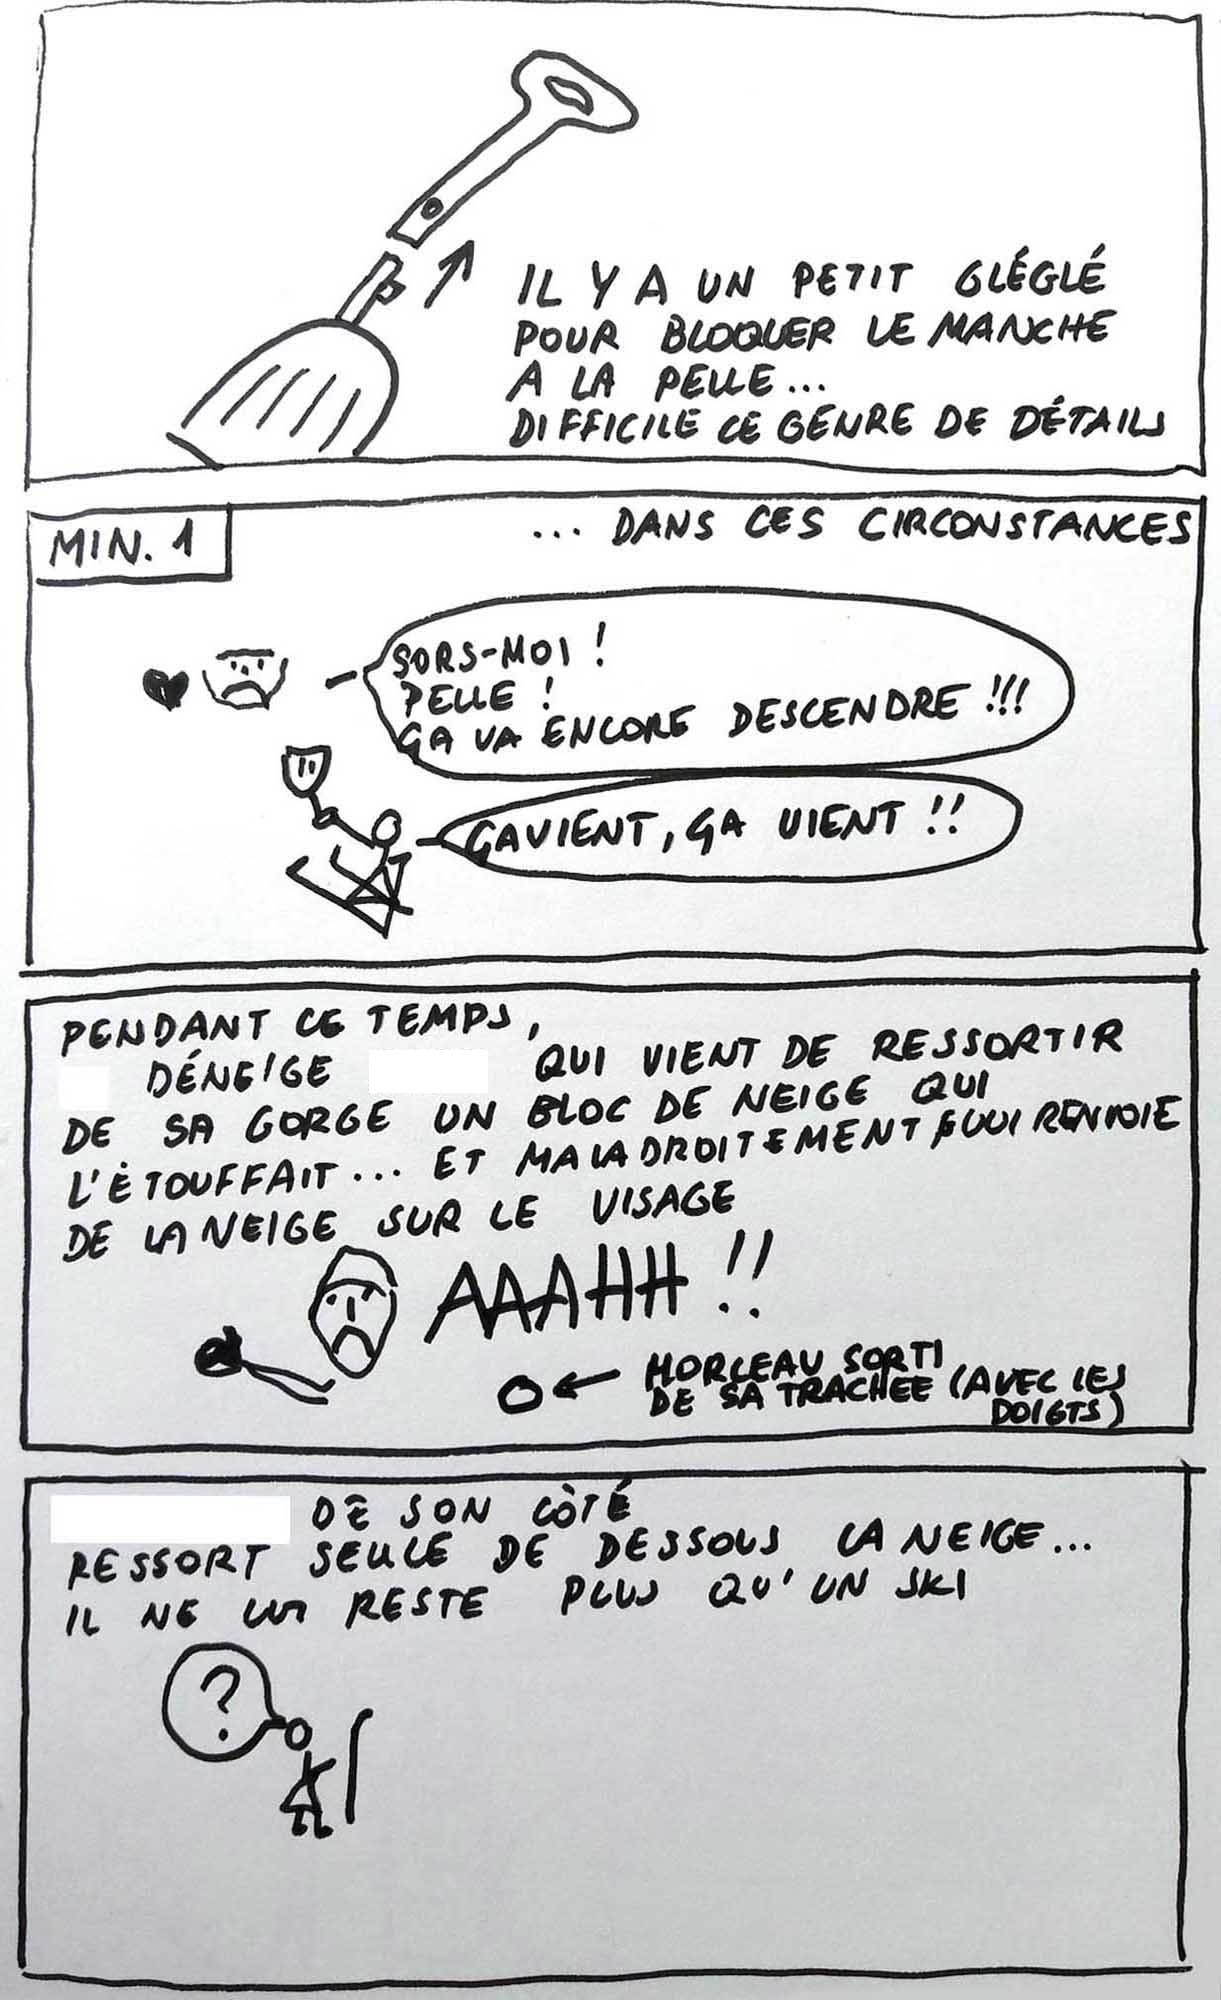 IL Y A UN PETIT GLÉGLÉ
POUR BLOQUER LE MANCHE
A LA PELLE...
DIFFICILE CE GENRE DE DÉTAILS
MIN. 1
... DANS CES CIRCONSTANCES
SORS-MOI !
PELLE !
ÇA VA ENCORE DESCENDRE !!!
ÇA VIENT, ÇA VIENT !!
PENDANT CE TEMPS,
DÉNEIGE QUI VIENT DE RESSORTIR
DE SA GORGE UN BLOC DE NEIGE QUI
L'ÉTOUFFAIT... ET MALADROITEMENT LUI RENVOIE
DE LA NEIGE SUR LE VISAGE
AAAHH !!
MORCEAU SORTI
DE SA TRACHEE (AVEC LES
DOIGTS)
DE SON CÒTÉ
RESSORT SEULE DE DESSOUS LA NEIGE...
IL NE LUI RESTE PLUS QU'UN SKI
?